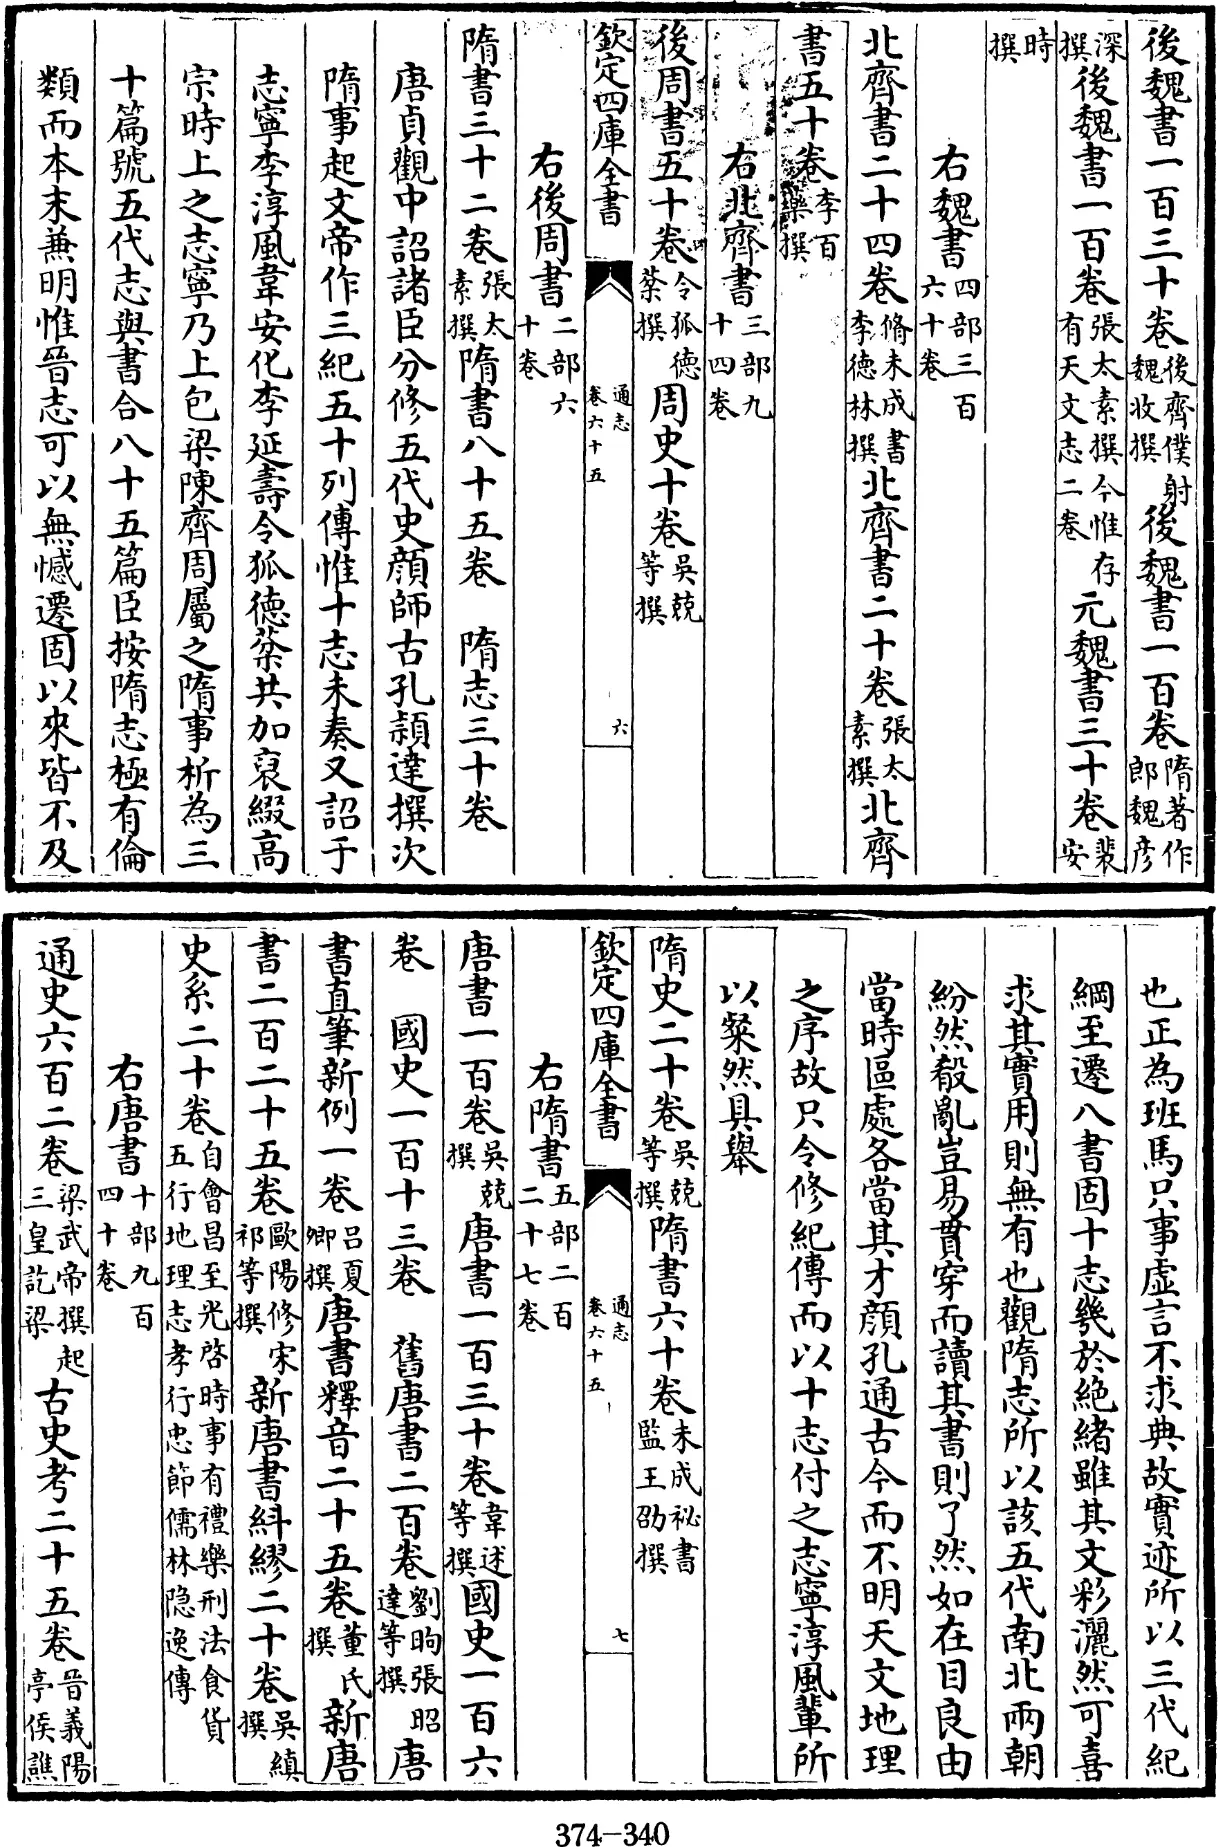 後魏書一百三十卷後齊僕射魏收撰後魏書一百卷隋著作郎魏彦
深撰後魏書一百卷張太素撰今惟存有天文志二卷元魏書三十卷裴安
時撰
右魏書四部三百六十卷
北齊書二十四卷脩未成書李德林撰北齊書二十卷張太素撰北齊
書五十卷李百樂撰
右北齊書三部九十四卷
後周書五十卷令狐德棻撰周史十卷吳兢等撰
欽定四庫全書 通志卷六十五 六
右後周書二部六十卷
隋書三十二卷張太素撰隋書八十五卷 隋志三十卷
唐貞觀中詔諸臣分修五代史顔師古孔頴達撰次
隋事起文帝作三紀五十列傳惟十志未奏又詔于
志寧李淳風韋安化李延壽令狐德棻共加裒綴高
宗時上之志寧乃上包梁陳齊周屬之隋事析為三
十篇號五代志與書合八十五篇臣按隋志極有倫
類而本末兼明惟晉志可以無憾遷固以來皆不及
也正為班馬只事虛言不求典故實迹所以三代紀
綱至遷八書固十志幾於絶緒雖其文彩灑然可喜
求其實用則無有也觀隋志所以該五代南北兩朝
紛然殽亂豈易貫穿而讀其書則了然如在目良由
當時區處各當其才顔孔通古今而不明天文地理
之序故只令修紀傳而以十志付之志寧淳風輩所
以粲然具舉
隋史二十卷吳兢等撰隋書六十卷未成祕書監王劭撰
欽定四庫全書 通志卷六十五 七
右隋書五部二百二十七卷
唐書一百卷吳兢撰唐書一百三十卷韋述等撰國史一百六
卷 國史一百十三卷 舊唐書二百卷劉昫張昭達等撰唐
書直筆新例一卷吕夏卿撰唐書釋音二十五卷董氏撰新唐
書二百二十五卷歐陽修宋祁等撰新唐書糾繆二十卷吳縝撰
史系二十卷自會昌至光啓時事有禮樂刑法食貨五行地理志孝行忠節儒林隐逸傳
右唐書十部九百四十卷
通史六百二卷梁武帝撰起三皇訖梁古史考二十五卷晉義陽亭侯譙
374-340